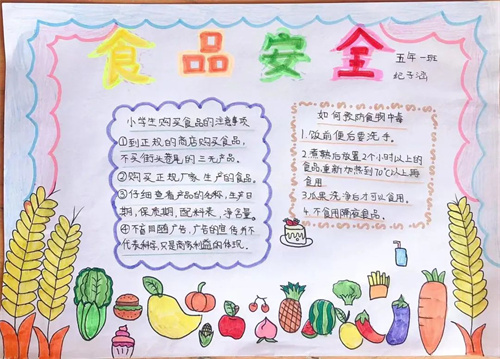 食品安全
五年一班
纪子涵
小学生购买食品的注意事项
①到正规的商店购买食品，
不买街头卖的三无产品。
②购买正规厂家生产的食品。
③仔细查看产品的名称，生产日
期，保质期，配料表，净含量。
④不盲目随广告，广告的宣传并不
代表科学，只是商家利益的体现。
如何预防食物中毒
1.饭前便后要洗手。
2.煮熟后放置2个小时以上的
食品，重新加热到70℃以上再
食用
3.瓜果洗净后才可食用。
4.不食用隔夜食品。